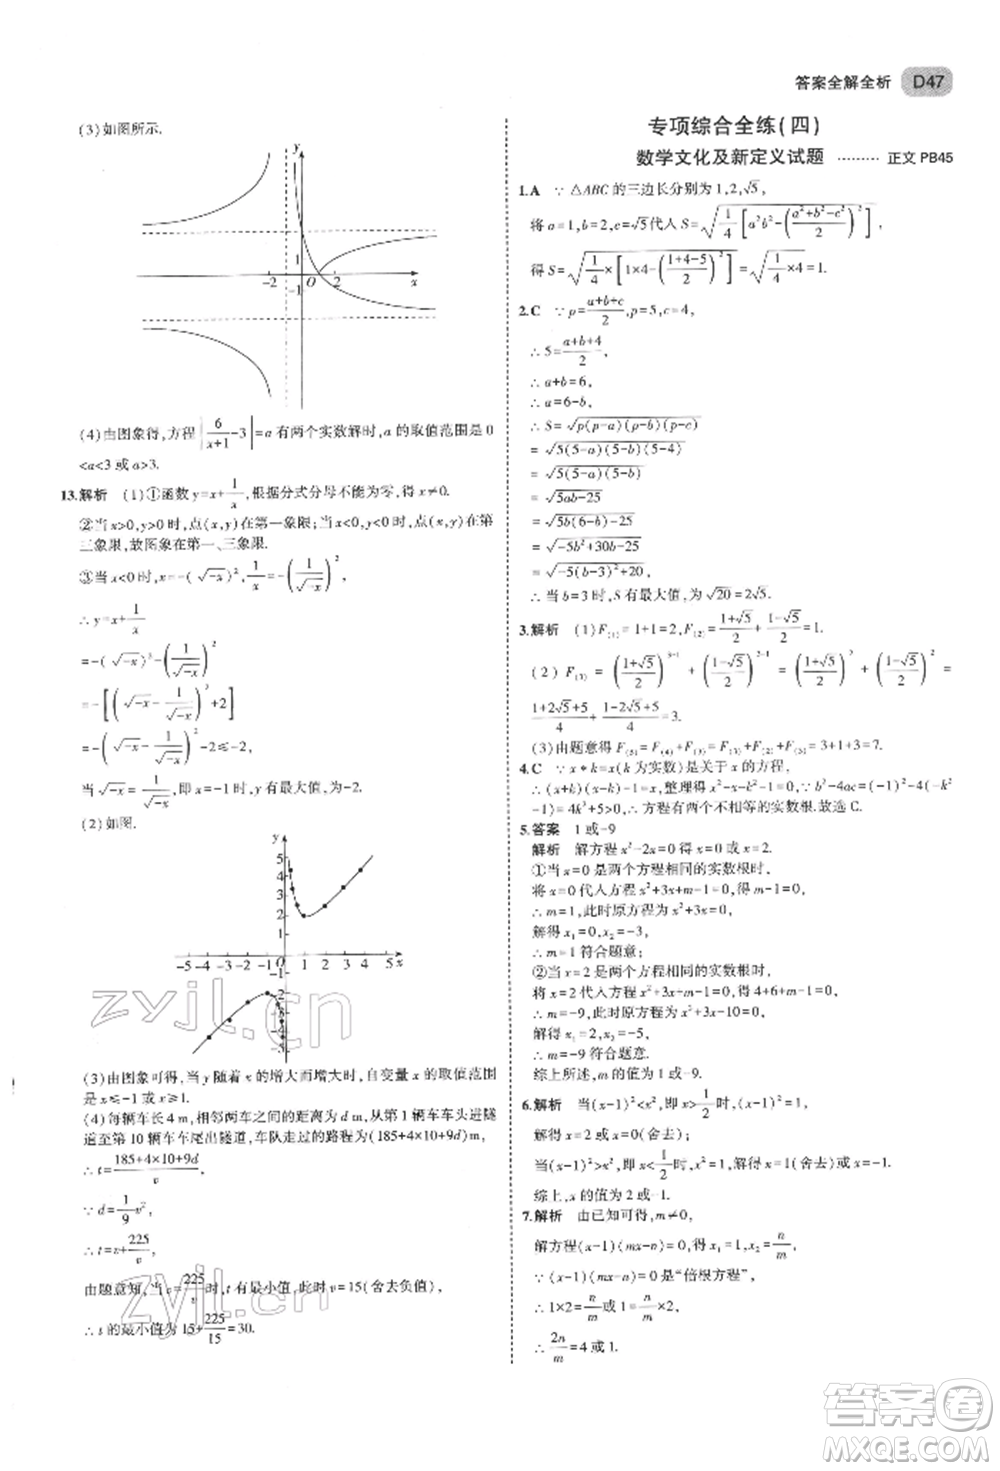 答案全解全析 D47
(3)如图所示.
y
1
-2 -1 O 2 x
(4)由图象得,方程|6/(x+1)-3|=a有两个实数解时,a的取值范围是0
<a<3或a>3.
13.解析 (1)①函数y=x+1/x,根据分式分母不能为零,得x≠0.
②当x>0,y>0时,点(x,y)在第一象限;当x<0,y<0时,点(x,y)在第
三象限,故图象在第一、三象限.
③当x<0时,x=-(√-x)²,1/x=-(1/√-x)²,
∴y=x+1/x
=-(√-x)²-(1/√-x)²
=-[(√-x-1/√-x)²+2]
=-(√-x-1/√-x)²-2≤-2.
当√-x=1/√-x,即x=-1时,y有最大值-2.
(2)如图.
y
5
4
3
2
1
-5-4-3-2-1 O 1 2 3 4 5 x
-1
-2
-3
-4
-5
(3)由图象可得,当y随着x的增大而增大时,自变量x的取值范围
是x≤-1或x≥1.
(4)每辆车长4 m,相邻两车之间的距离为d m,从第1辆车车头进隧
道至第10辆车车尾出隧道,车队走过的路程为(185+4×10+9d)m,
∴t=(185+4×10+9d)/v,
∵d=1/9v²,
∴t=v+225/v,
由题意知,当v=225/v时,t有最小值,此时v=15(舍去负值),
∴t的最小值为15+225/15=30.
专项综合全练(四)
数学文化及新定义试题 ……… 正文PB45
1.A ∵△ABC的三边长分别为1,2,√5,
将a=1,b=2,c=√5代入S=√(1/4[a²b²-((a²+b²-c²)/2)²]),
得S=√(1/4×[1×4-((1+4-5)/2)²])=√(1/4×4)=1.
2.C ∵p=(a+b+c)/2,p=5,c=4,
∴5=(a+b+4)/2,
∴a+b=6,
∴a=6-b,
∴S=√p(p-a)(p-b)(p-c)
=√5(5-a)(5-b)(5-4)
=√5ab-25
=√5b(6-b)-25
=√-5b²+30b-25
=√-5(b-3)²+20,
∴当b=3时,S有最大值,为√20=2√5.
3.解析 (1)F(1)=1+1=2,F(2)=(1+√5)/2+(1-√5)/2=1.
(2) F(3) = ((1+√5)/2)³⁻¹ + ((1-√5)/2)³⁻¹ = ((1+√5)/2)² + ((1-√5)/2)² =
(1+2√5+5)/4+(1-2√5+5)/4=3.
(3)由题意得F(5)=F(4)+F(3)=F(3)+F(2)+F(3)=3+1+3=7.
4.C ∵x*k=x(k为实数)是关于x的方程,
∴(x+k)(x-k)-1=x,整理得x²-x-k²-1=0,∵b²-4ac=(-1)²-4(-k²
-1)=4k²+5>0,∴方程有两个不相等的实数根.故选C.
5.答案 1或-9
解析 解方程x²-2x=0得x=0或x=2.
①当x=0是两个方程相同的实数根时,
将x=0代入方程x²+3x+m-1=0,得m-1=0,
∴m=1,此时原方程为x²+3x=0,
解得x₁=0,x₂=-3,
∴m=1符合题意;
②当x=2是两个方程相同的实数根时,
将x=2代入方程x²+3x+m-1=0,得4+6+m-1=0,
∴m=-9,此时原方程为x²+3x-10=0,
解得x₁=2,x₂=-5,
∴m=-9符合题意.
综上所述,m的值为1或-9.
6.解析 当(x-1)²<x²,即x>1/2时,x²=4,
解得x=2或x=-2(舍去);
当(x-1)²>x²,即x<1/2时,(x-1)²=4,解得x=3(舍去)或x=-1.
综上,x的值为2或-1.
7.解析 由已知可得,m≠0,
解方程(x-1)(mx-n)=0,得x₁=1,x₂=n/m,
∵(x-1)(mx-n)=0是“倍根方程”,
∴1×2=n/m或1=n/m×2,
∴2n/m=4或1.
zyjl.cn
zyjl.cn
答案圈
MXQE.COM